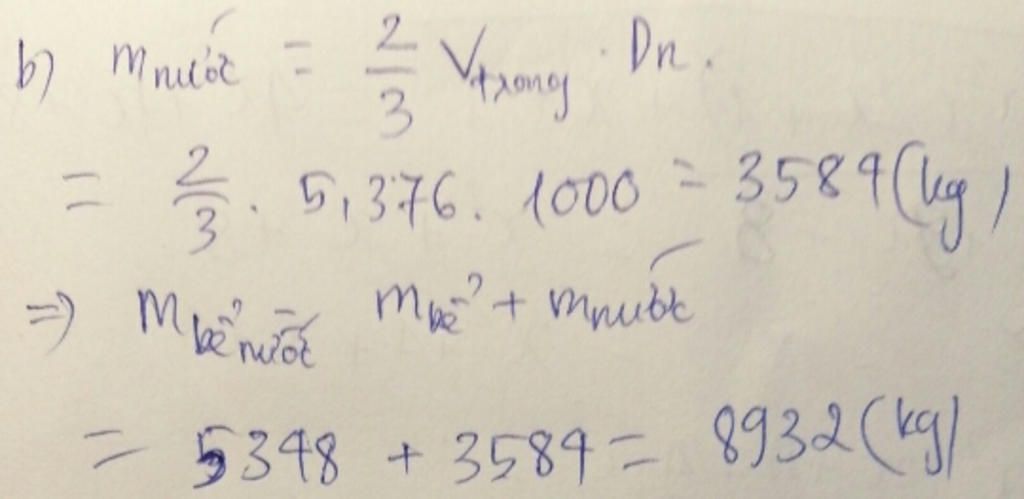 b) m nước = 2/3 V trong . Dn.
= 2/3 . 5,376 . 1000 = 3584 (kg)
=> m bể nước = m bể + m nước
= 5348 + 3584 = 8932 (kg)